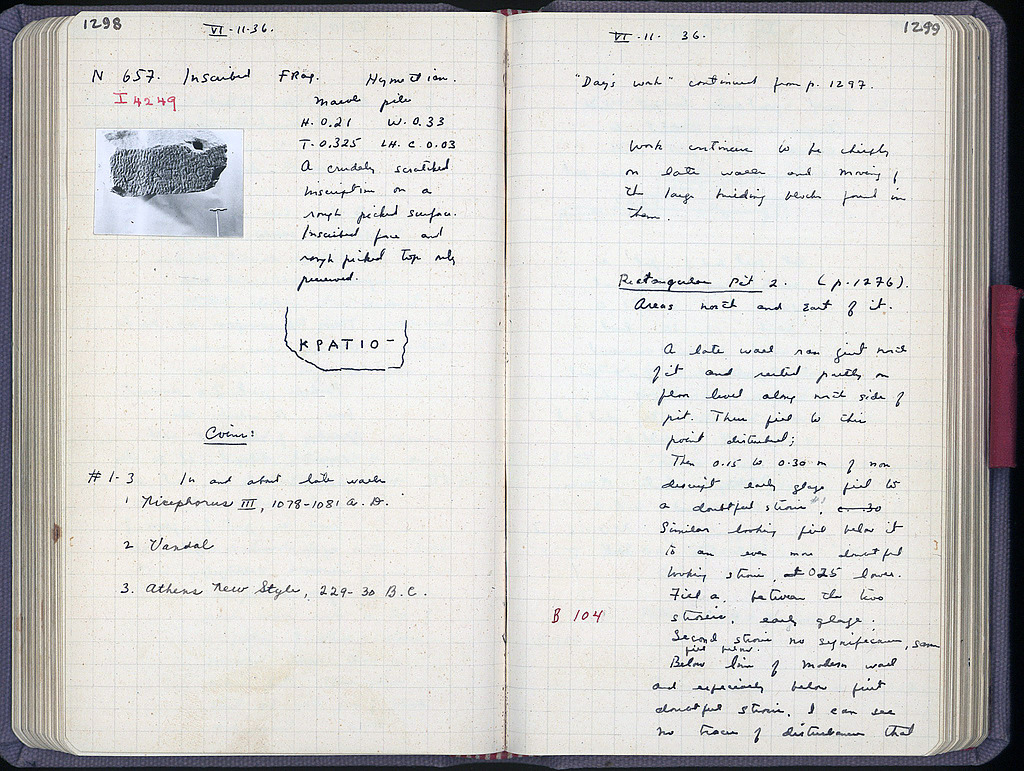 1298
VI-11-36.
N 657. Inscribed Frag. Hymettian.
I 4249
Marble pile
H. 0.21 W. 0.33
T. 0.325 LH. C. 0.03
A crudely scratched
inscription on a
rough picked surface.
Inscribed face and
rough picked top only
preserved.
ΚΡΑΤΙΟ-
Coins:
#1-3 In and about late walls
1 Nicephorus III, 1078-1081 A.D.
2 Vandal
3. Athens New Style, 229-30 B.C.
1299
VI-11-36.
"Day's work" continued from p. 1297.
Work continues to be chiefly
on late walls and moving of
the large building blocks found in
them.
Rectangular Pit 2. (p.1276).
Areas north and East of it.
A late wall ran just north
of it and rested partly on
floor level along north side of
pit. Then fill to this
point disturbed;
Then 0.15 to 0.30 m of non
descript early glaze fill to
a doubtful strosis #1, c. 30
Similar looking fill below it
to an even more doubtful
looking strosis, at 0.25 lower.
Fill a, between the two
B 104
stroseis, early glaze.
Second strosis no significance, same
fill below.
Below line of modern wall
and especially below first
doubtful strosis, I can see
no traces of disturbance that